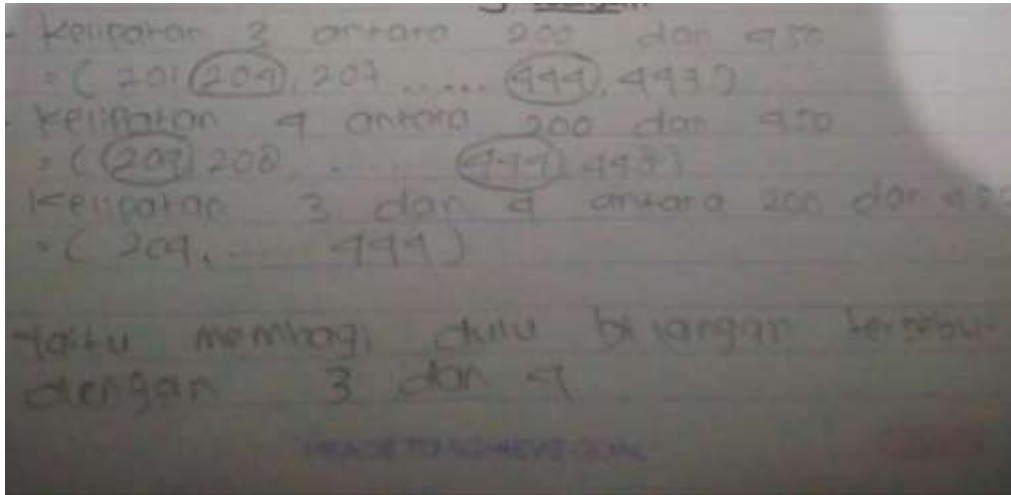 - Kelipatan 3 antara 200 dan 450
= ( 201 204, 207 ..... 444, 447)
- Kelipatan 4 antara 200 dan 450
= ( 204 208, ..... 444, 448)
Kelipatan 3 dan 4 antara 200 dan 450
= ( 204, .... 444 )
Yaitu membagi dulu bilangan tersebut
dengan 3 dan 4